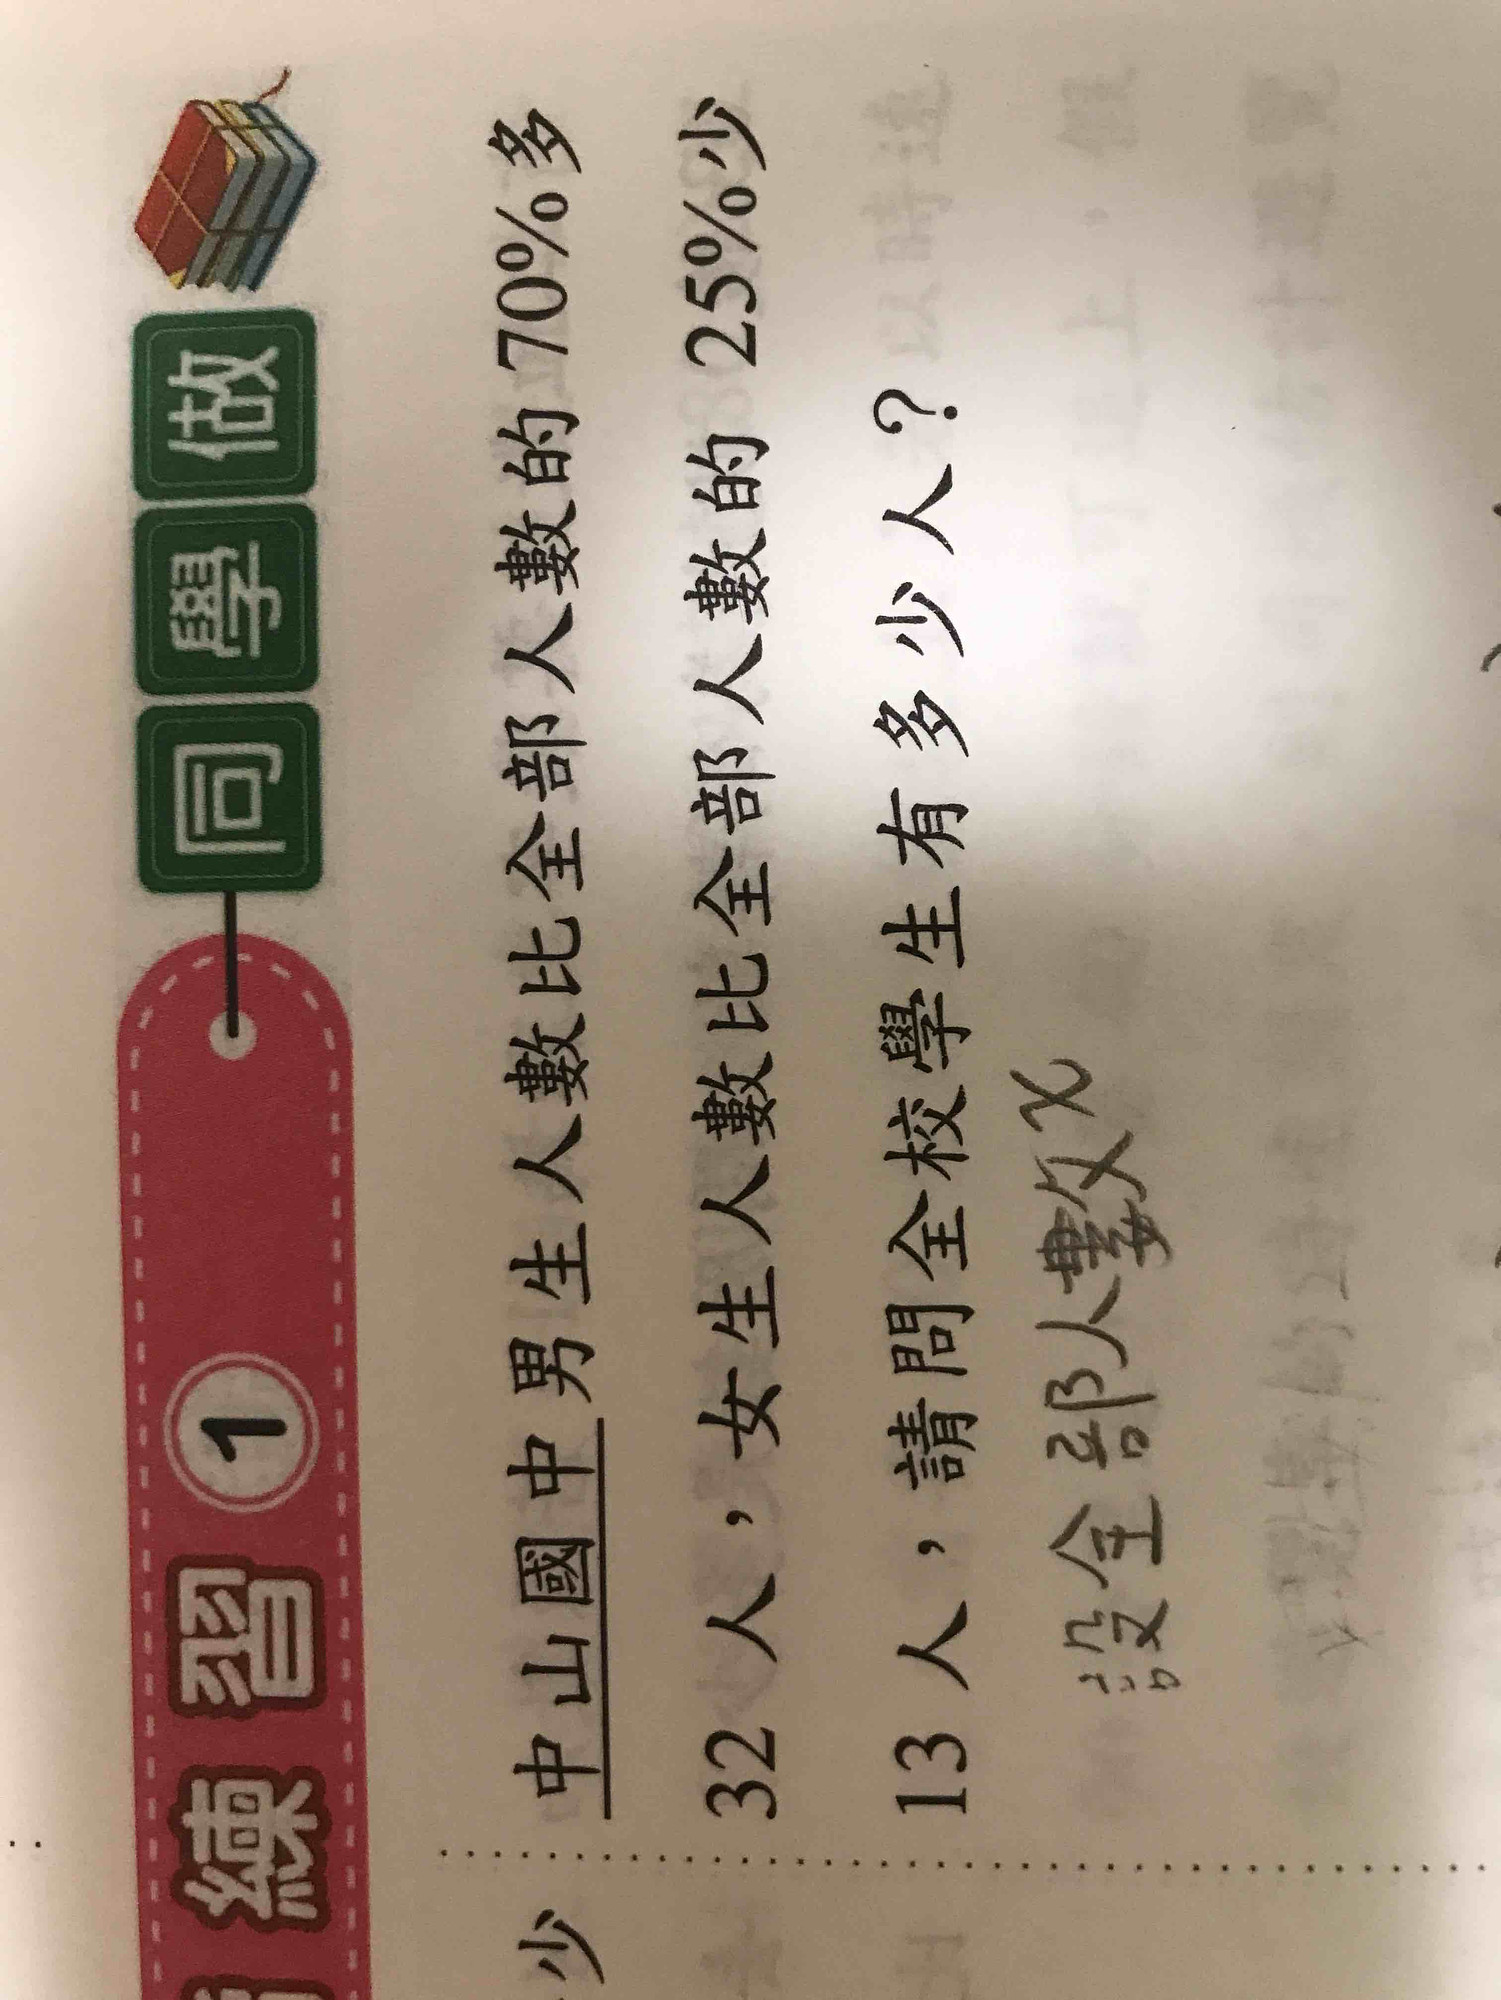 練習 1 同學做
中山國中男生人數比全部人數的 70%多
32 人，女生人數比全部人數的 25%少
13 人，請問全校學生有多少人？
設全部人數x
少